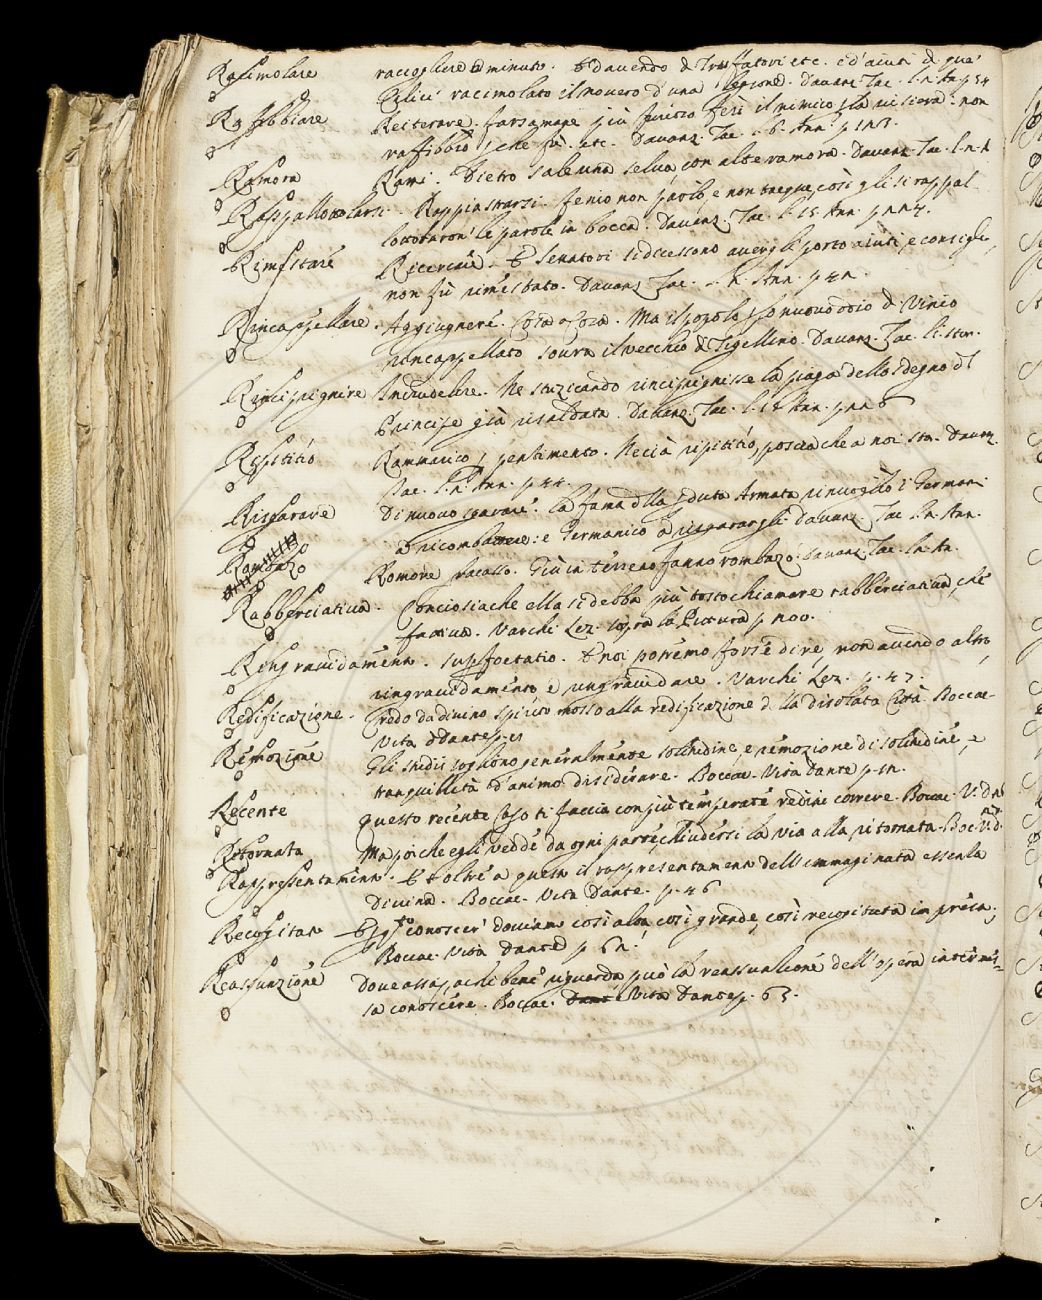 Racimolare raccogliere a minuto. E davendo di Truffatori etc. e d'aiuti di que'
Celici racimolato il novero d'una legione. Davanz. Tac. l. 2. An. p. 54
Raffibbiare Reiterare. farsamane più furioso ferì il nimico già in sicura: non
raffibbiò, che fù. etc. Davanz. Tac. l. 6. Ann. p. 123.
Ramora Rami. Dietro sale una selva con alte ramora. Davanz. Tac. l. 2. A
Rappallottolarsi. Rappiastrarsi. fenio non parlò, e non tacque, così gli si rappal-
lottoraron' le parole in bocca. Davanz. Tac. l. 15. Ann. p. 224.
Rimestare Ricercare. E Senatori si dicessono avergli porto aiuti, e consigli,
non fù rimestato. Davanz. Tac. l. 2. Ann. p. 42.
Rincappellare. Aggiugnere. Cosa a Cosa. Ma il popolo per nuovo odio di Vinio
rincappellato sovra il vecchio di Tigellino. Davanz. Tac. l. 1. Stor.
Rincipignire Incrudelire. Ne stuzicando rincipignisse la piaga dello sdegno del
Principe già risaldata. Davanz. Tac. l. 15. Ann. p. 226
Ripititìo Rammarico, pentimento. Necià ripititìo, poscia che a noi sta. Davanz.
Tac. l. 2. Ann. p. 44.
Risparare Di nuovo sparare. La fama della perduta Armata rinvogliò i Germani
a ricombattere: e Germanico a risparargli. Davanz. Tac. l. 2. An.
Rombazo Romore fracasso. Giù in terreno fanno rombazo. Davanz. Tac. l. 2. An.
Rabberciativa. Conciosiache ella si debba più tosto chiamare rabberciativa, che
fattiva. Varchi Lez. sopra la Pittura p. 200.
Ringravidamento. superfoetatio. E noi potremo forse dire, non avendo altro
ringravidamento e ringravidare. Varchi Lez. p. 47.
Redificazione. Credo da divino spirito mosso alla redificazione della disolata Città. Boccac.
Vita di Dante p. 21
Remozione Gli studii sogliono generalmente solitudine, e remozione di solitudine, e
tranquillità d'animo disiderare. Boccac. Vita Dante p. 12.
Recente questo recente Caso ti faccia con più temperate redini correre. Boccac. V. D. p.
Ritornata Ma poiche egli vedde da ogni parte chiudersi la via alla ritornata. Boc. V. d. D.
Rappresentamento. Et oltre a questo il rappresentamento dell'immaginata essenza
Divina. Boccac. Vita Dante. p. 46
Recogitato E per conoscer' doviamo così alta così grande, così recogitata impresa.
Boccac. Vita Dante p. 62.
Reassunzione Dove assai, acchi bene riguarda, può la reassunzione dell'opera intermes-
sa conoscere. Boccac. Vita Dante p. 63.